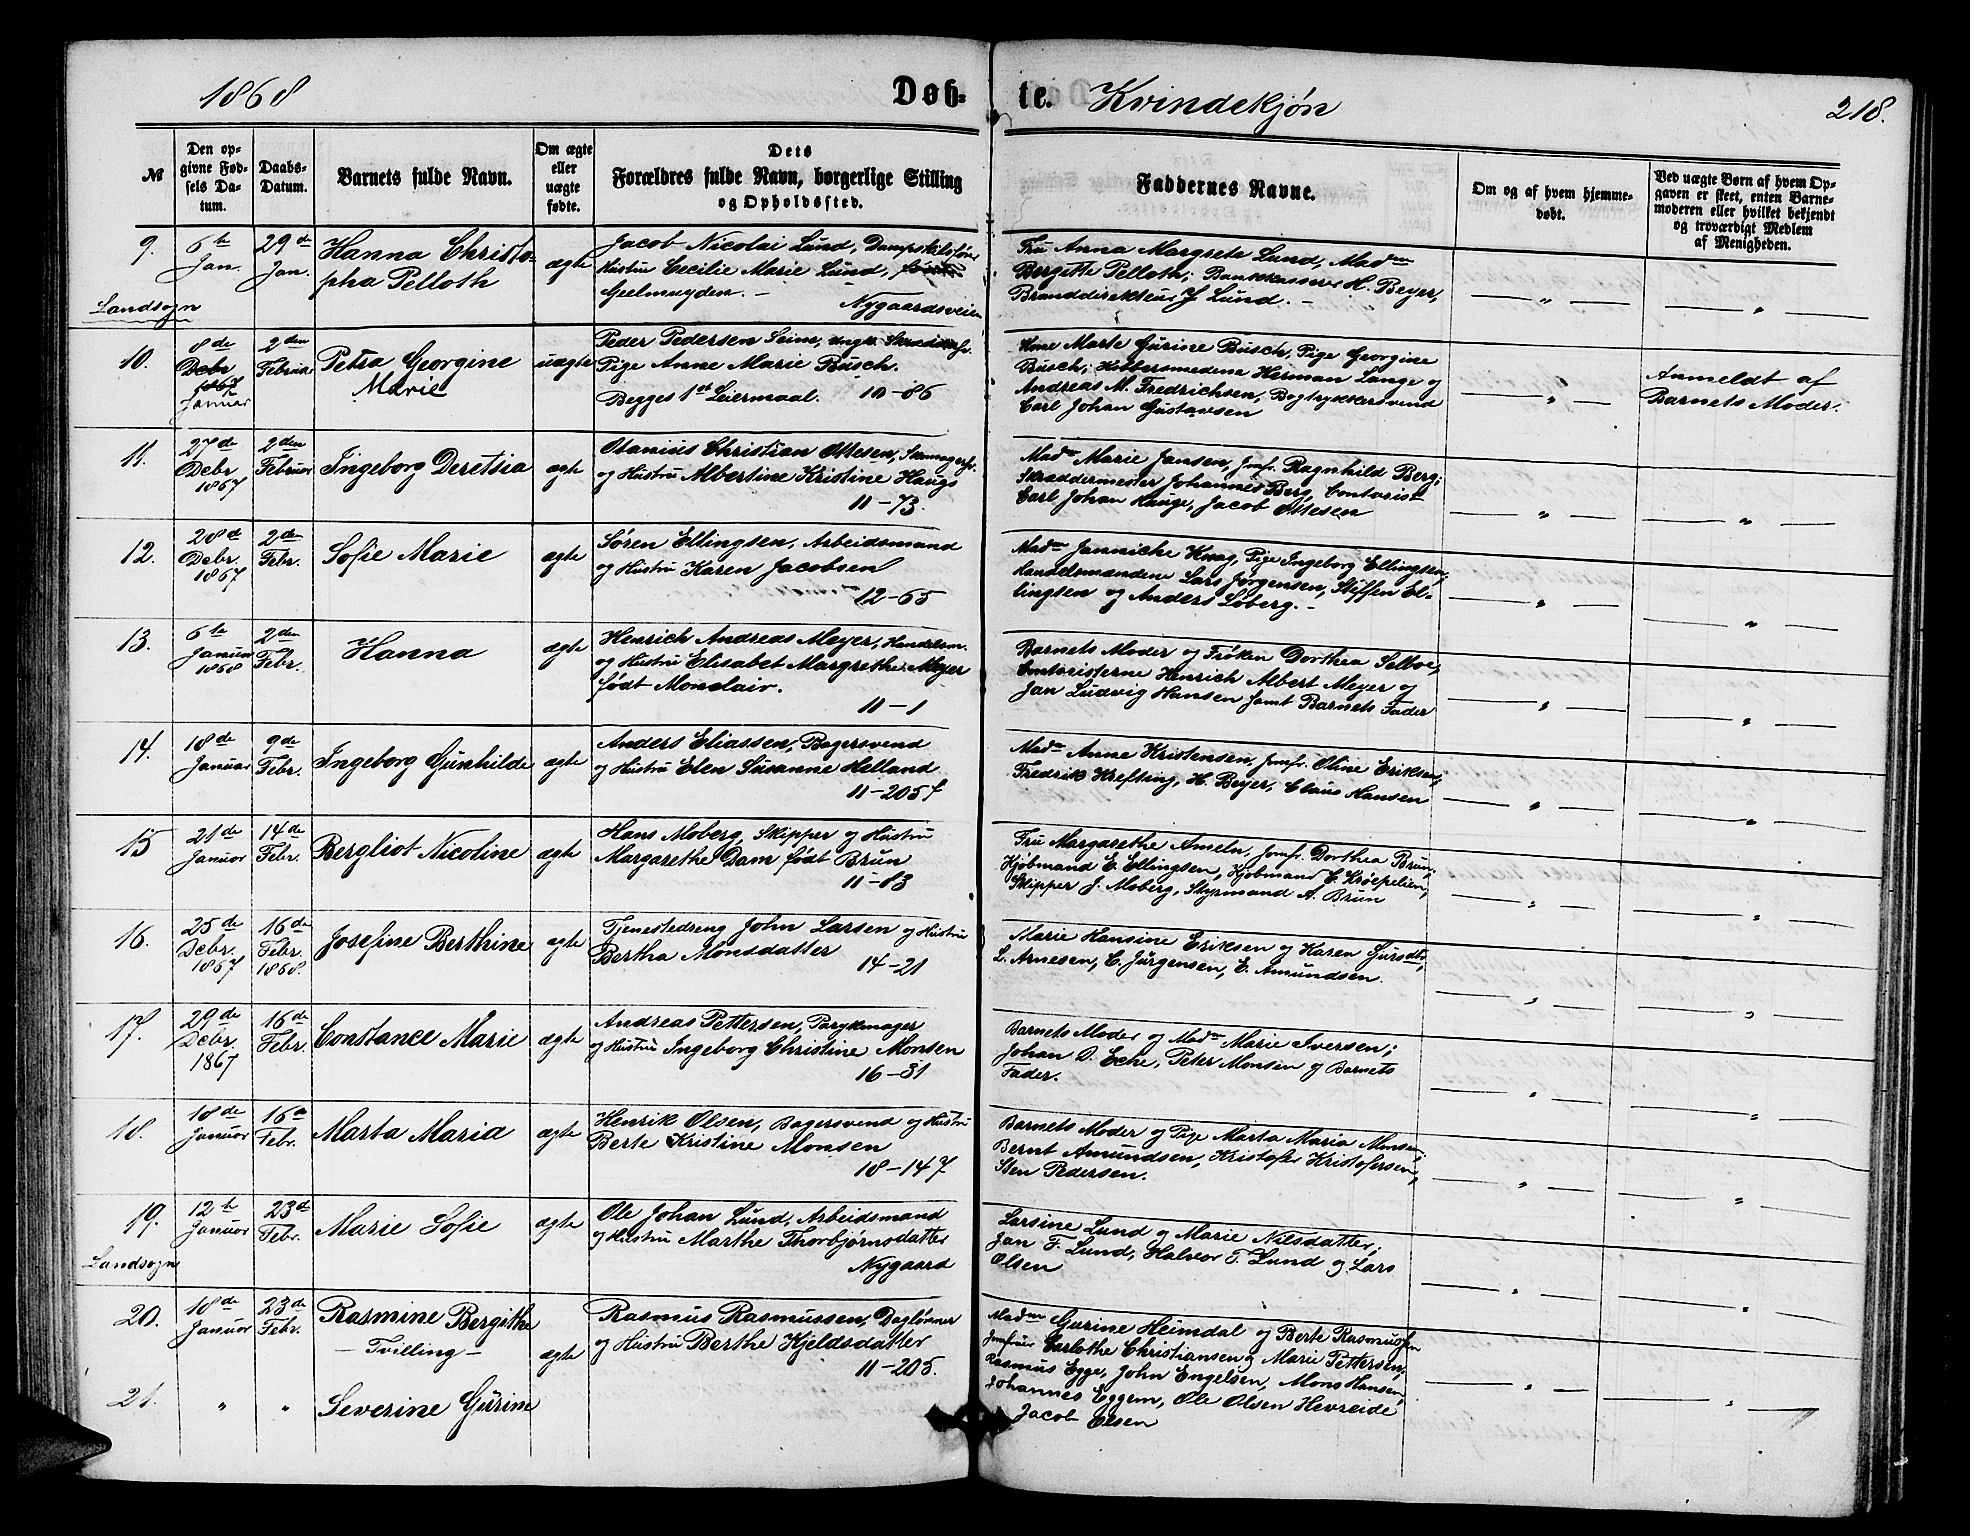 1868 Døb- te. Kvindekjøn 218.
№
Den op-
givne Fød-
sels Da-
tum.
Daabs-
Datum.
Barnets fulde Navn.
Om ægte
eller
uægte
fødte.
Dets
Forældres fulde Navn, borgerlige Stilling
og Opholdssted.
Faddernes Navne.
Om og af hvem hjemme-
døbt.
Ved uægte Børn af hvem Op-
gaven er skeet, enten Barne-
moderen eller hvilket bekjendt
og troværdigt Medlem
af Menigheden.
9.
Landsogn
6te
Jan.
29de
Jan.
Hanna Christo-
pha Pelloth
ægte
Jacob Nicolai Lund, Dampskibsfører
Hustru Cecilie Marie Lund,
Geelmuyden. —
Nygaardsveien
Fru Anna Margrete Lund, Madm
Bergitte Pelloth; Bankkasserer H. Beyer,
Branddirekteur J. Lund. —
10.
8de
Debr
1867
Januar
2den
Februar
Petra Georgine
Marie
uægte
Peder Pedersen Seim, ungk.
Pige Anne Marie Busch.
Begges 1ste Leiermaal. 10-86
Kone Marte Gurine Busch, Pige Georgine
Busch; Kobbersmedene Herman Lange og
Andreas M. Fredrichsen, Bogtrykkersvend
Carl Johan Gustavsen
Anmeldt af
Barnets Moder.
11.
27de
Debr
1867
2den
Februar
Ingeborg Deretsia
ægte
Otanius Christian Ottesen,
og Hustru Albertine Kristine Haugs
11-73.
Madm Marie Jansen, Jomfr. Ragnhild Berg;
Skræddermester Johannes Berg, Contorist
Carl Johan Hauge, Jacob Ottesen
12.
28de
Debr.
1867
2den
Febr.
Sofie Marie
ægte
Søren Ellingsen, Arbeidsmand
og Hustru Karen Jacobsen
12-65
Madm Jannicke Knag, Pige Ingeborg Ellingsen;
Handelsmændene Lars Jørgensen, Steffen El-
lingsen og Anders Løberg. —
13.
6te
Januar
1868
2den
Febr.
Hanna
ægte
Henrich Andreas Meyer, Handelsm.
og Hustru Elisabet Margrethe Meyer
født Monclair.
11-1
Barnets Moder og Frøken Dorthea Seltoe,
Contoristerne Henrich Albert Meyer og
Jan Ludvig Hansen samt Barnets Fader
14.
18de
Januar
9de
Febr.
Ingeborg Gunhilde
ægte
Anders Eliassen, Bagersvend
og Hustru Elen Susanne Helland
11-205
Madm Anne Kristensen, Jomfr. Oline Eriksen;
Fredrik Krefting, H. Beyer, Claus Hansen
15
21de
Januar
14de
Febr.
Bergliot Nicoline
ægte
Hans Moberg, Skipper og Hustru
Margarethe Dam født Brun
11-83
Fru Margarethe Ameln, Jomfr. Dorthea Brun;
Kjøbmand E. Ellingsen, Kjøbmand C. Krøepelien,
Skipper J. Moberg, Styrmand A. Brun
16.
25de
Debr.
1867
16de
Febr.
1868.
Josefine Berthine
ægte
Tjenestedreng John Larsen og Hustru
Bertha Monsdatter 14-21
Marie Hansine Eriksen og Karen
L. Arnesen, C. Jürgensen, E. Amundsen.
17.
29de
Debr.
1867
16de
Febr.
Constance Marie
ægte
Andreas Pettersen, Parykmager
og Hustru Ingeborg Christine Monsen
16-31
Barnets Moder og Madm Marie Iversen;
Johan D. Eche, Peter Monsen og Barnets
Fader.
18.
18de
Januar
16de
Febr.
Marta Maria
ægte
Henrik Olsen, Bagersvend og Hustru
Berte Kristine Monsen
18-147
Barnets Moder og Pige Marta Maria Monsen;
Bernt Amundsen, Kristofer Kristofersen,
Sten Pedersen.
19.
Landsogn
12te
Januar
23de
Febr.
Marie Sofie
ægte
Ole Johan Lund, Arbeidsmand
og Hustru Marthe Thorbjørnsdatter
Nygaard
Larsine Lund og Marie Nilsdatter;
Jan F. Lund, Halvor T. Lund og Lars
Olsen
20.
18de
Januar
23de
Febr.
Rasmine Bergithe
— Tvilling —
ægte
Rasmus Rasmussen, Dagløner
og Hustru Berthe Kjeldsdatter
11-205.
Madm Gurine Heimdal og Berte Rasmussen
Jomfruer Carlothe Christiansen og Marie Pettersen;
Rasmus Egge, John Engelsen, Mons Hansen,
Johannes Eggem, Ole Olsen Hevreide
Jacob Olsen
21.
"
"
Severine Gurine